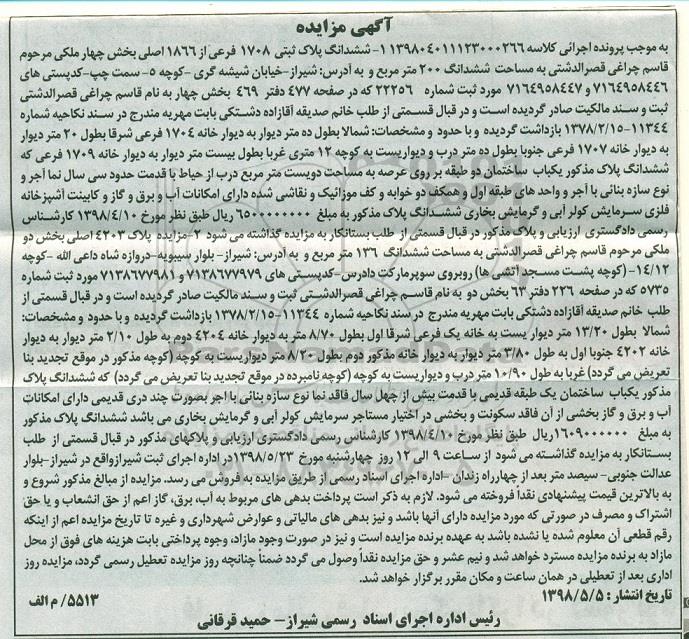 آگهی مزایده
به موجب پرونده اجرائی کلاسه ۱۳۹۸۰۴۰۱۱۱۲۳۰۰۰۲۶۶ ۱- ششدانگ پلاک ثبتی ۱۷۰۸ فرعی از ۱۸۶۶ اصلی بخش چهار ملکی مرحوم
قاسم چراغی قصرالدشتی به مساحت ششدانگ ۲۰۰ متر مربع و به آدرس: شیراز-خیابان شیشه گری -کوچه ۵- سمت چپ-کدپستی های
۷۱۶۴۹۵۸۴۴۶ و ۷۱۶۴۹۵۸۴۴۷ مورد ثبت شماره ۲۲۲۵۶ که در صفحه ۴۷۷ دفتر ۴۶۹ بخش چهار به نام قاسم چراغی قصرالدشتی
ثبت و سند مالکیت صادر گردیده است و در قبال قسمتی از طلب خانم صدیقه آقازاده دشتکی بابت مهریه مندرج در سند نکاحیه شماره
۱۱۳۴۴-۱۳۷۸/۲/۱۵ بازداشت گردیده و با حدود و مشخصات: شمالا بطول ده متر دیوار به دیوار خانه ۱۷۰۴ فرعی شرقا بطول ۲۰ متر دیوار
به دیوار خانه ۱۷۰۷ فرعی جنوبا بطول ده متر درب و دیواریست به کوچه ۱۲ متری غربا بطول بیست متر دیوار به دیوار خانه ۱۷۰۹ فرعی که
ششدانگ پلاک مذکور یکباب ساختمان دو طبقه بر روی عرصه به مساحت دویست متر مربع درب از حیاط با قدمت حدود سی سال نما آجر و
نوع سازه بنائی با آجر و واحد های طبقه اول و همکف دو خوابه و کف موزائیک و نقاشی شده دارای امکانات آب و برق و گاز و کابینت آشپزخانه
فلزی سرمایش کولر آبی و گرمایش بخاری ششدانگ پلاک مذکور به مبلغ ۶۵۰۰۰۰۰۰۰۰ ریال طبق نظر مورخ ۱۳۹۸/۴/۱۰ کارشناس
رسمی دادگستری ارزیابی و پلاک مذکور در قبال قسمتی از طلب بستانکار به مزایده گذاشته می شود ۲-مزایده پلاک ۴۲۰۳ اصلی بخش دو
ملکی مرحوم قاسم چراغی قصرالدشتی به مساحت ششدانگ ۱۳۶ متر مربع و به آدرس: شیراز- بلوار سیبویه-دروازه شاه داعی الله -کوچه
۱۴/۱۲- (کوچه پشت مسجد آتشی ها) روبروی سوپرمارکت دادرس-کدپستی های ۷۱۳۸۶۷۷۹۷۹ و ۷۱۳۸۶۷۷۹۸۱ مورد ثبت شماره
۵۷۳۵ که در صفحه ۲۲۶ دفتر ۶۳ بخش دو به نام قاسم چراغی قصرالدشتی ثبت و سند مالکیت صادر گردیده است و در قبال قسمتی از
طلب خانم صدیقه آقازاده دشتکی بابت مهریه مندرج در سند نکاحیه شماره ۱۱۳۴۴-۱۳۷۸/۲/۱۵ بازداشت گردیده و با حدود و مشخصات:
شمالا بطول ۱۳/۲۰ متر دیوار یست به خانه یک فرعی شرقا اول بطول ۸/۷۰ متر به دیوار خانه ۴۲۰۴ دوم به طول ۲/۱۰ متر دیوار به دیوار
خانه ۴۲۰۲ جنوبا اول به طول ۳/۸۰ متر دیوار به دیوار خانه مذکور دوم بطول ۸/۲۰ متر دیواریست به کوچه (کوچه مذکور در موقع تجدید بنا
تعریض می گردد) غربا به طول ۱۰/۹۰ متر درب و دیواریست به کوچه (کوچه نامبرده در موقع تجدید بنا تعریض می گردد) که ششدانگ پلاک
مذکور یکباب ساختمان یک طبقه قدیمی با قدمت بیش از چهل سال فاقد نما نوع سازه بنائی با آجر بصورت چند دری قدیمی دارای امکانات
آب و برق و گاز بخشی از آن فاقد سکونت و بخشی در اختیار مستاجر سرمایش کولر آبی و گرمایش بخاری می باشد ششدانگ پلاک مذکور
به مبلغ ۱۶۰۹۰۰۰۰۰۰ ریال طبق نظر مورخ ۱۳۹۸/۴/۱۰ کارشناس رسمی دادگستری ارزیابی و پلاکهای مذکور در قبال قسمتی از طلب
بستانکار به مزایده گذاشته می شود از ساعت ۹ الی ۱۲ روز چهارشنبه مورخ ۱۳۹۸/۵/۲۳ در اداره اجرای ثبت شیراز واقع در شیراز-بلوار
عدالت جنوبی- سیصد متر بعد از چهارراه زندان -اداره اجرای اسناد رسمی از طریق مزایده به فروش می رسد. مزایده از مبالغ مذکور شروع و
به بالاترین قیمت پیشنهادی نقدا فروخته می شود. لازم به ذکر است پرداخت بدهی های مربوط به آب، برق، گاز اعم از حق انشعاب و یا حق
اشتراک و مصرف در صورتی که مورد مزایده دارای آنها باشد و نیز بدهی های مالیاتی و عوارض شهرداری و غیره تا تاریخ مزایده اعم از اینکه
رقم قطعی آن معلوم شده یا نشده باشد به عهده برنده مزایده است و نیز در صورت وجود مازاد، وجوه پرداختی بابت هزینه های فوق از محل
مازاد به برنده مزایده مسترد خواهد شد و نیم عشر و حق مزایده نقداً وصول می گردد ضمناً چنانچه روز مزایده تعطیل رسمی گردد، مزایده روز
اداری بعد از تعطیلی در همان ساعت و مکان مقرر برگزار خواهد شد.
تاریخ انتشار : ۱۳۹۸/۵/۵
۵۵۱۳/ م الف
رئیس اداره اجرای اسناد رسمی شیراز- حمید قرقانی